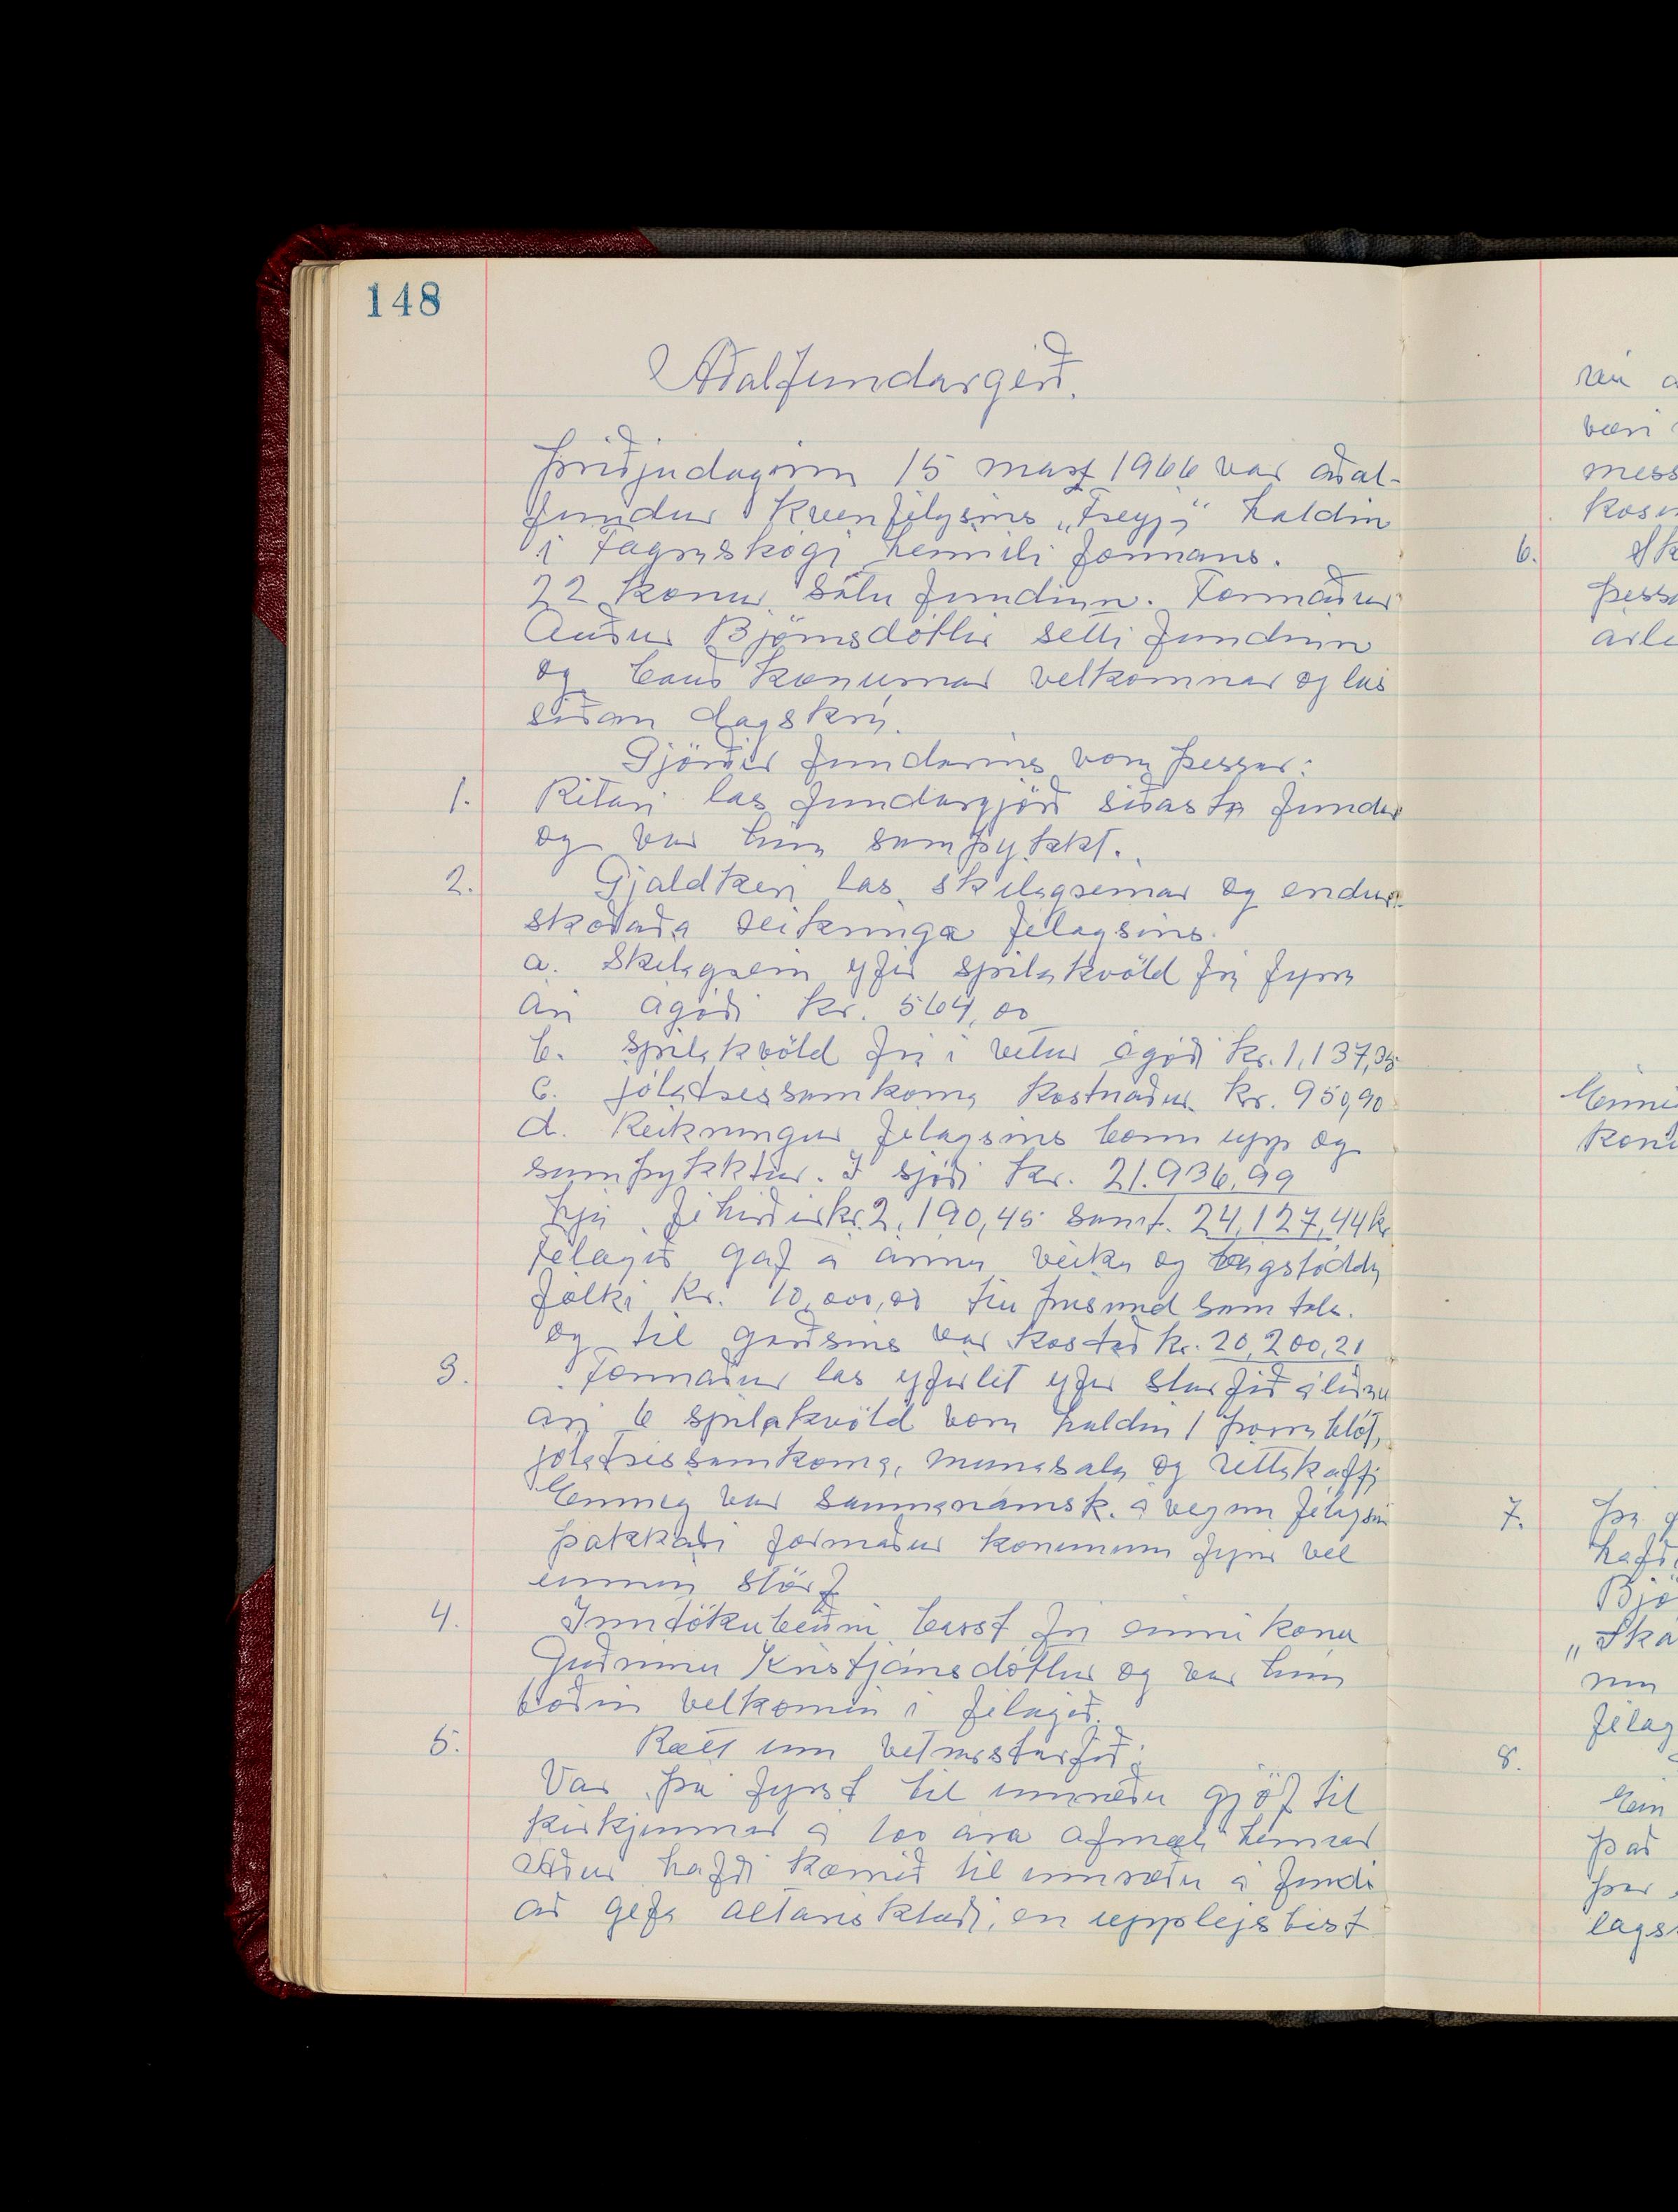 148
Aðalfundargerð.
Þriðjudaginn 15 marz 1966 var aðal-
fundur kvenfélagsins „Freyja" haldin
í Fagraskógi heimili formans.
22 konur sátu fundinn. Formaður
Auður Björnsdóttir setti fundinn
og bauð konurnar velkomnar og las
síðan dagskrá.
Gjörðir fundarins voru þessar:
1. Ritari las fundargjörð síðasta fundar
og var hún samþykkt.
2. Gjaldkeri las skilagreinar og endur-
skoðaða reikninga félagsins.
a. Skilagrein yfir spilakvöld frá fyrra
ári ágóði kr. 564,00
b. Spilakvöld frá í vetur ágóði kr. 1,137,35
c. jólatréssamkoma kostnaður kr. 950,90
d. Reikningur félagsins borin upp og
samþykktur. Í sjóði kr. 21.936,99
hjá féhirðir kr. 2,190,45 samt. 24,127,44 kr
Félagið gaf á árinu veiku og bágstöddu
fólki kr. 10,000,00 tíu þúsund sem tals.
og til garðsins var kostað kr. 20,200,21
3. Formaður las yfirlit yfir starfið á liðnu
ári 6 spilakvöld voru haldin 1 þorrablót,
jólatréssamkoma, munasala og réttakaffi
Einnig var saumanámsk. á vegum félagsin
þakkaði formaður konunum fyrir vel
unnin störf
4. Inntökubeiðni barst frá einni konu
Guðrúnu Kristjánsdóttur og var hún
boðin velkomin í félagið.
5. Rætt um vetrarstarfið:
Var þá fyrst til umræðu gjöf til
kirkjunnar á 100 ára afmæli hennar
áður hafði komið til umræðu á fundi
að gefa altarisklæði, en upplýstist
rin
væri
mess
kosn
6. Sk
þess
arle
Einni
kon
7. Þá
hafð
Bjö
„Ska
nin
félag
8.
Ein
það
þar
lags